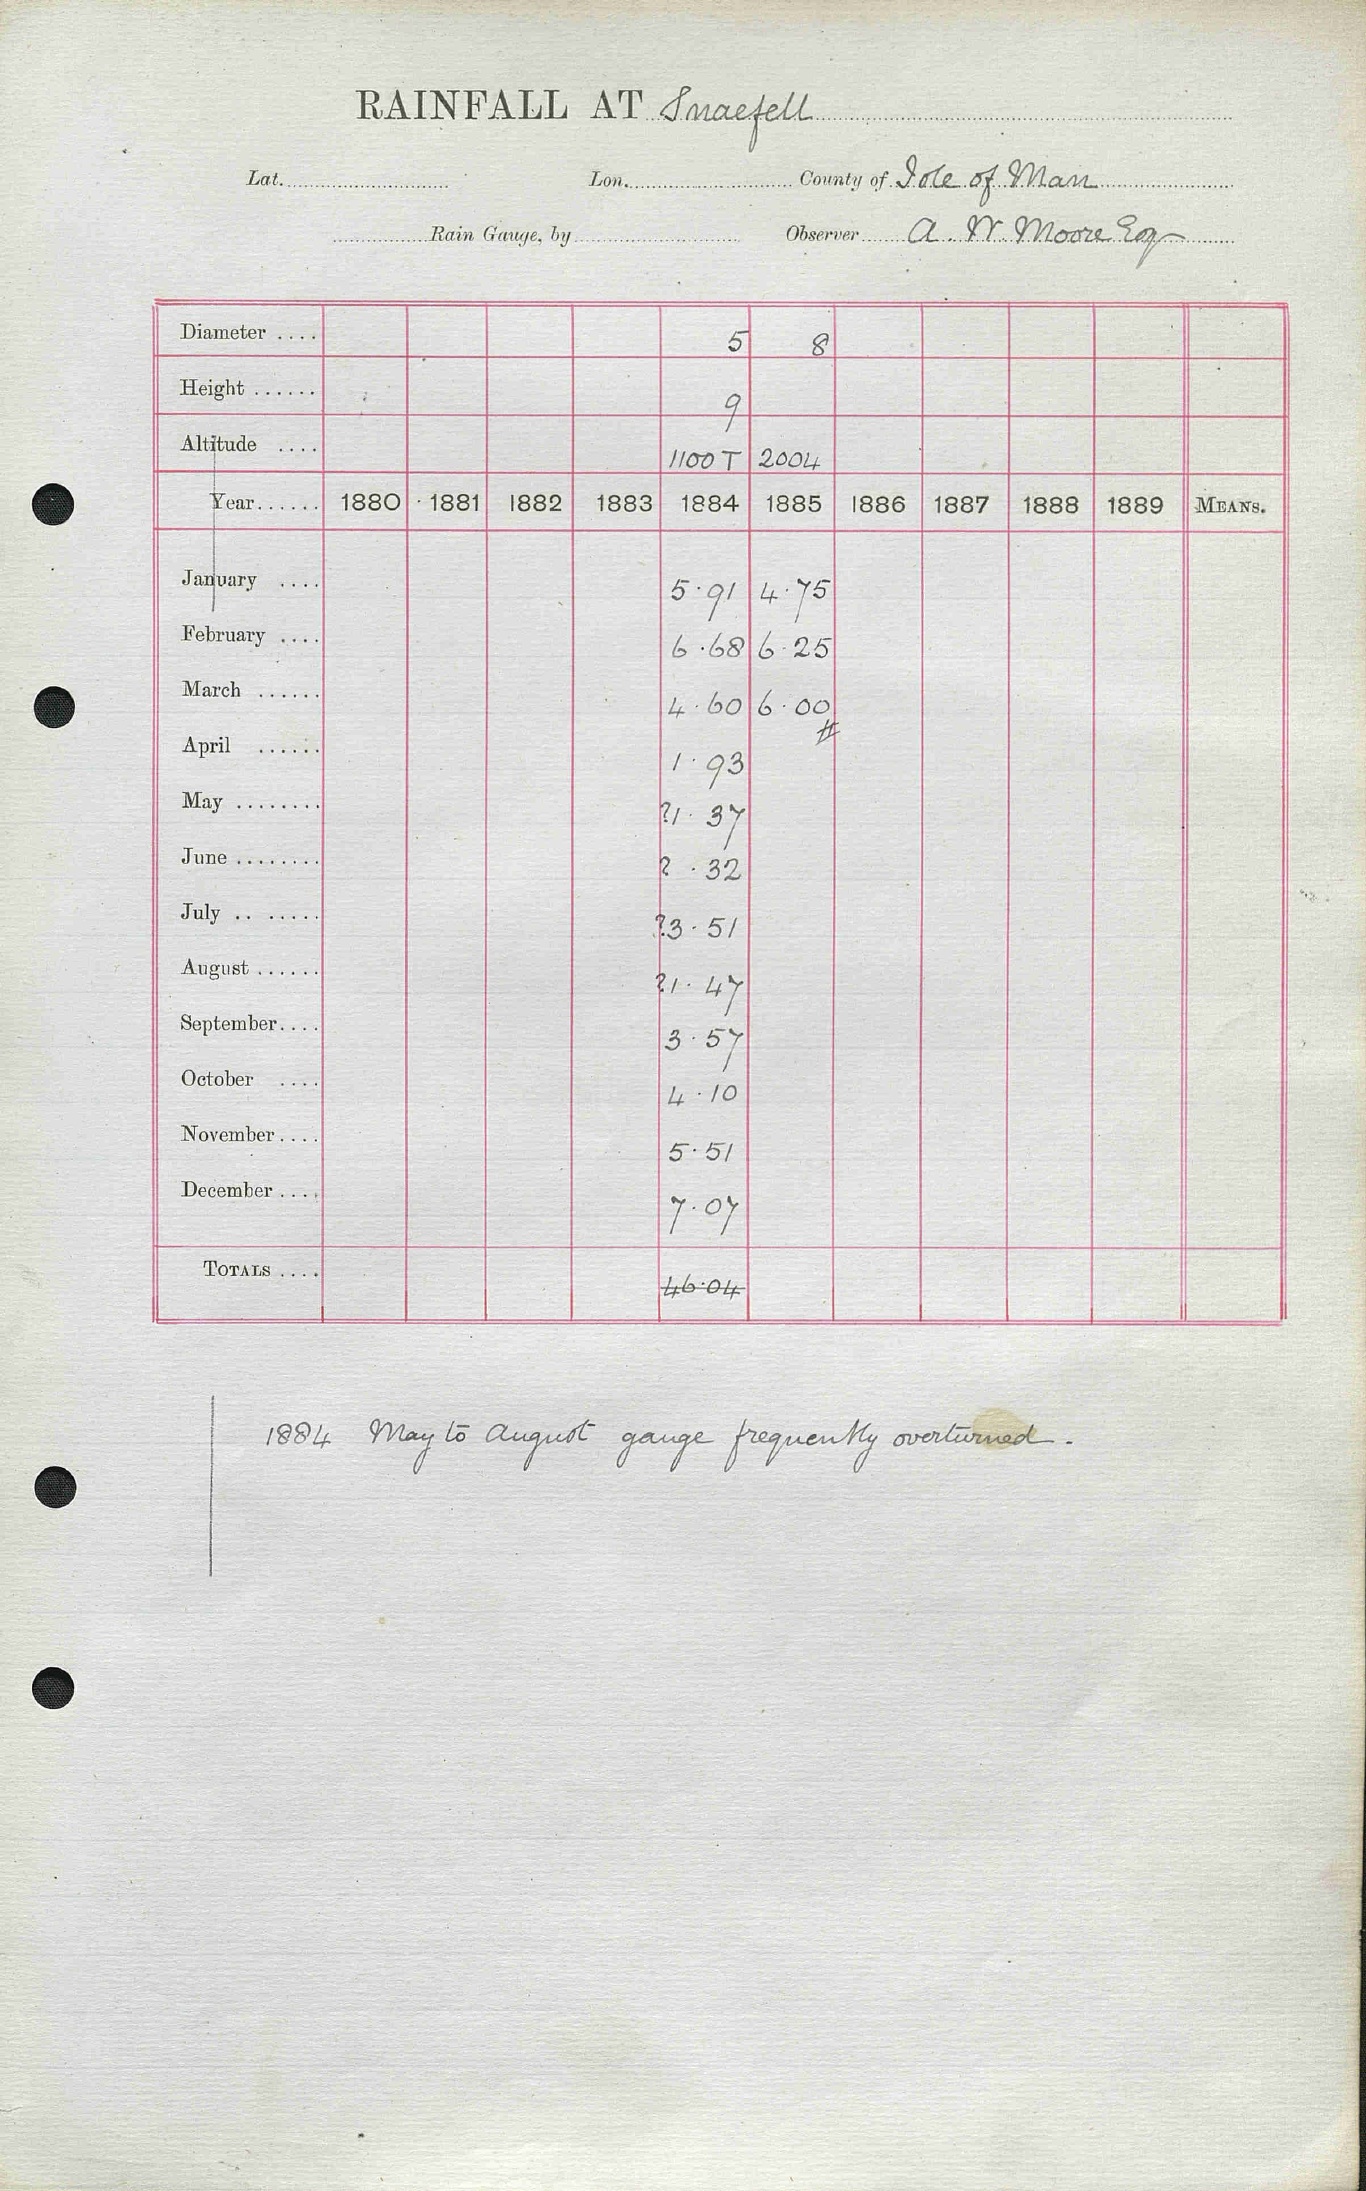 RAINFALL AT Snaefell
Lat. Lon. County of Isle of Man
Rain Gauge, by Observer A. W. Moore Esq
Diameter .... 5 8
Height ...... 9
Altitude .... 1100 T 2004
Year...... 1880 1881 1882 1883 1884 1885 1886 1887 1888 1889 MEANS.
January .... 5.91 4.75
February .... 6.68 6.25
March ...... 4.60 6.00
April ...... 1.93
May ........ ?1.37
June ........ ? .32
July .. ..... ?3.51
August ...... ?1.47
September.... 3.57
October .... 4.10
November.... 5.51
December .... 7.07
TOTALS .... 46.04
1884 May to August gauge frequently overturned.